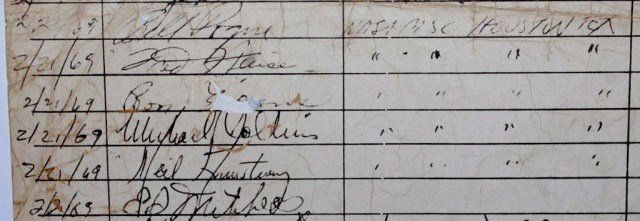 2/21/69 NASA MSC HOUSTON TEX
2/21/69 Fred Haise " " " "
2/21/69 " " " "
2/21/69 Michael Collins " " " "
2/21/69 Neil Armstrong " " " "
2/21/69 Ed Mitchell